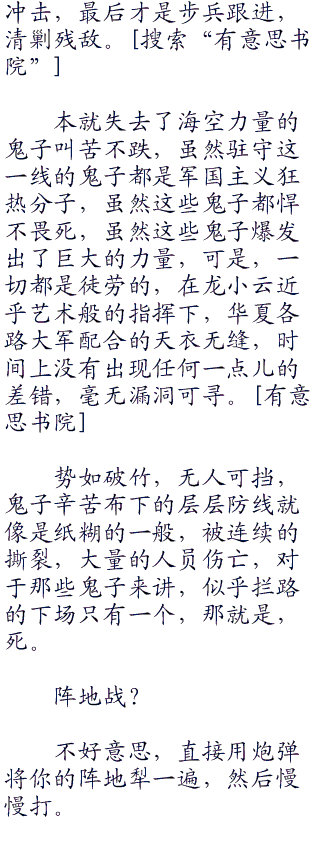 冲击，最后才是步兵跟进，
清剿残敌。[搜索“有意思书
院”]
本就失去了海空力量的
鬼子叫苦不跌，虽然驻守这
一线的鬼子都是军国主义狂
热分子，虽然这些鬼子都悍
不畏死，虽然这些鬼子爆发
出了巨大的力量，可是，一
切都是徒劳的，在龙小云近
乎艺术般的指挥下，华夏各
路大军配合的天衣无缝，时
间上没有出现任何一点儿的
差错，毫无漏洞可寻。[有意
思书院]
势如破竹，无人可挡，
鬼子辛苦布下的层层防线就
像是纸糊的一般，被连续的
撕裂，大量的人员伤亡，对
于那些鬼子来讲，似乎拦路
的下场只有一个，那就是，
死。
阵地战？
不好意思，直接用炮弹
将你的阵地犁一遍，然后慢
慢打。